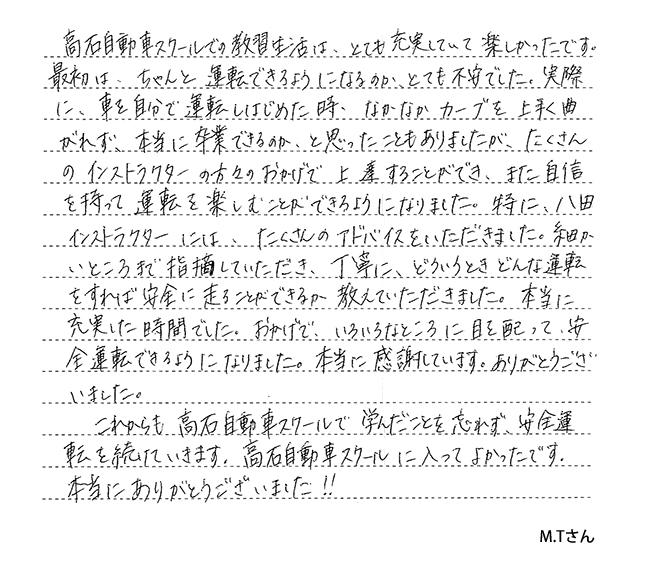 高石自動車スクールでの教習生活は、とても充実していて楽しかったです。
最初は、ちゃんと運転できるようになるのか、とても不安でした。実際
に、車を自分で運転しはじめた時、なかなかカーブを上手く曲
がれず、本当に卒業できるのか、と思ったこともありましたが、たくさん
のインストラクターの方々のおかげで上達することができ、また自信
を持って運転を楽しむことができるようになりました。特に、八田
インストラクターには、たくさんのアドバイスをいただきました。細か
いところまで指摘していただき、丁寧に、どういうときどんな運転
をすれば安全に走ることができるか教えていただきました。本当に
充実した時間でした。おかげで、いろいろなところに目を配って、安
全運転できるようになりました。本当に感謝しています。ありがとうござ
いました。
これからも高石自動車スクールで学んだことを忘れず、安全運
転を続けていきます。高石自動車スクールに入ってよかったです。
本当にありがとうございました!!
M.Tさん